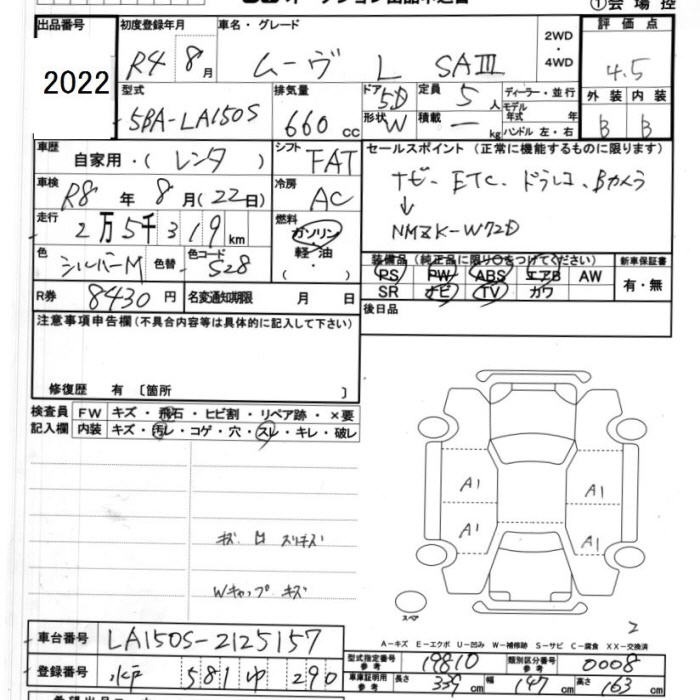 ①会場控
出品番号 2022
初度登録年月 R4 8月
車名・グレード ムーヴ L SAⅢ
2WD・4WD
評価点 4.5
外装 B 内装 B
型式 5BA-LA150S
排気量 660cc
ドア 5D 形状 W
定員 5人
積載 ー kg
ディーラー・並行
モデル年式 年式
ハンドル 左・右
車歴 自家用・(レンタ)
シフト FAT
セールスポイント(正常に機能するものに限ります)
ナビ、ETC、ドラレコ、Bカメラ
↓
NMZK-W72D
車検 R8年8月(22日)
冷房 AC
走行 2万5千319km
燃料 ガソリン・軽・油( ・ )
色 シルバーM 色替 色コード S28
装備品(純正品に限り○をつけてください)
PS PW ABS エアB AW
SR ナビ TV カワ
新車保証書 有・無
R券 8430円
名変通知期限 月 日
後日品
注意事項申告欄(不具合内容等は具体的に記入して下さい)
修復歴 有 〔箇所 〕
検査員記入欄
FW キズ・飛石・ヒビ割・リペア跡・×要
内装 キズ・汚レ・コゲ・穴・スレ・キレ・破レ
A1 A1
A1 A1
Wキャップ キズ
スペア
2
A－キズ E－エクボ U－凹み W－補修跡 S－サビ C－腐食 XX－交換済
車台番号 LA150S-2125157
登録番号 水戸 581 ゆ 290
型式指定番号 参考 19810
類別区分番号 参考 0008
車庫証明用 参考 長さ 339cm 幅 147cm 高さ 163cm